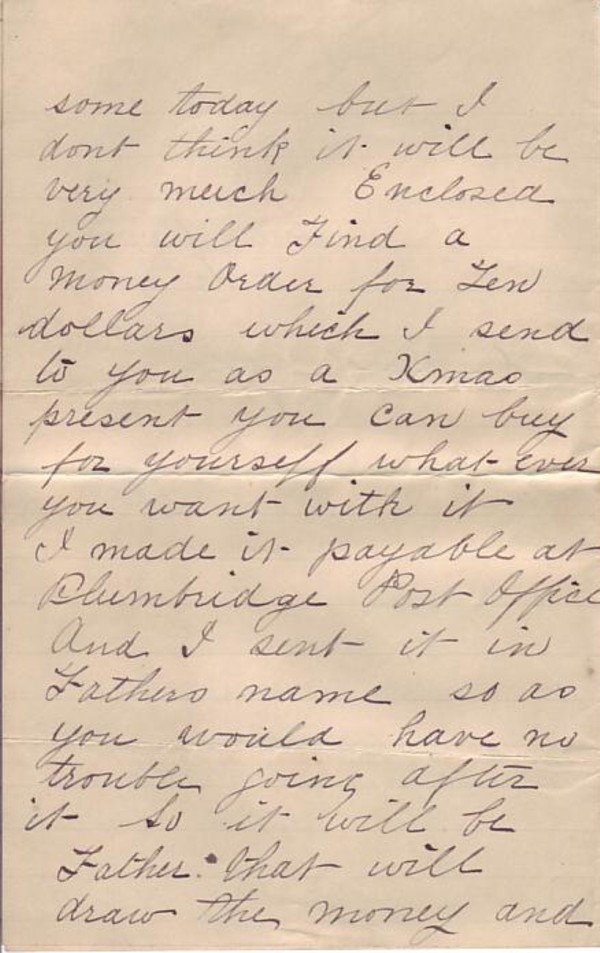 some today but I
dont think it will be
very much Enclosed
you will Find a
money Order for Ten
dollars which I send
to you as a Xmas
present you can buy
for yourself what ever
you want with it
I made it payable at
Plumbridge Post Office
And I sent it in
Fathers name so as
you would have no
trouble going after
it So it will be
Father that will
draw the money and